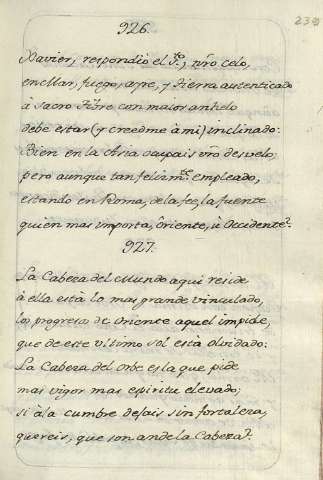 926.
239
Xavier, respondio el S.to, nr̃o celo,
en Mar, fuego, ayre, y tierra autenticado
à Sacro Tibre con maior anhelo
debe estar (y creedme à mi) inclinado:
Bien en la Asia ocupais vr̃o desvelo,
pero aunque tan felizm.te empleado,
estando en Roma, de la fee, la fuente
quien mas importa, Oriente, ù Occidente?
927.
La Cabeza del Mundo aqui reside
à ella està lo mas grande vinculado,
los progresos de Oriente aquel impide,
que de este ultimo Sol està olvidado:
La Cabeza del Orbe es la que pide
mas vigor mas espiritu elevado;
si à la cumbre dejais sin fortaleza,
quereis, que son ande la Cabeza?